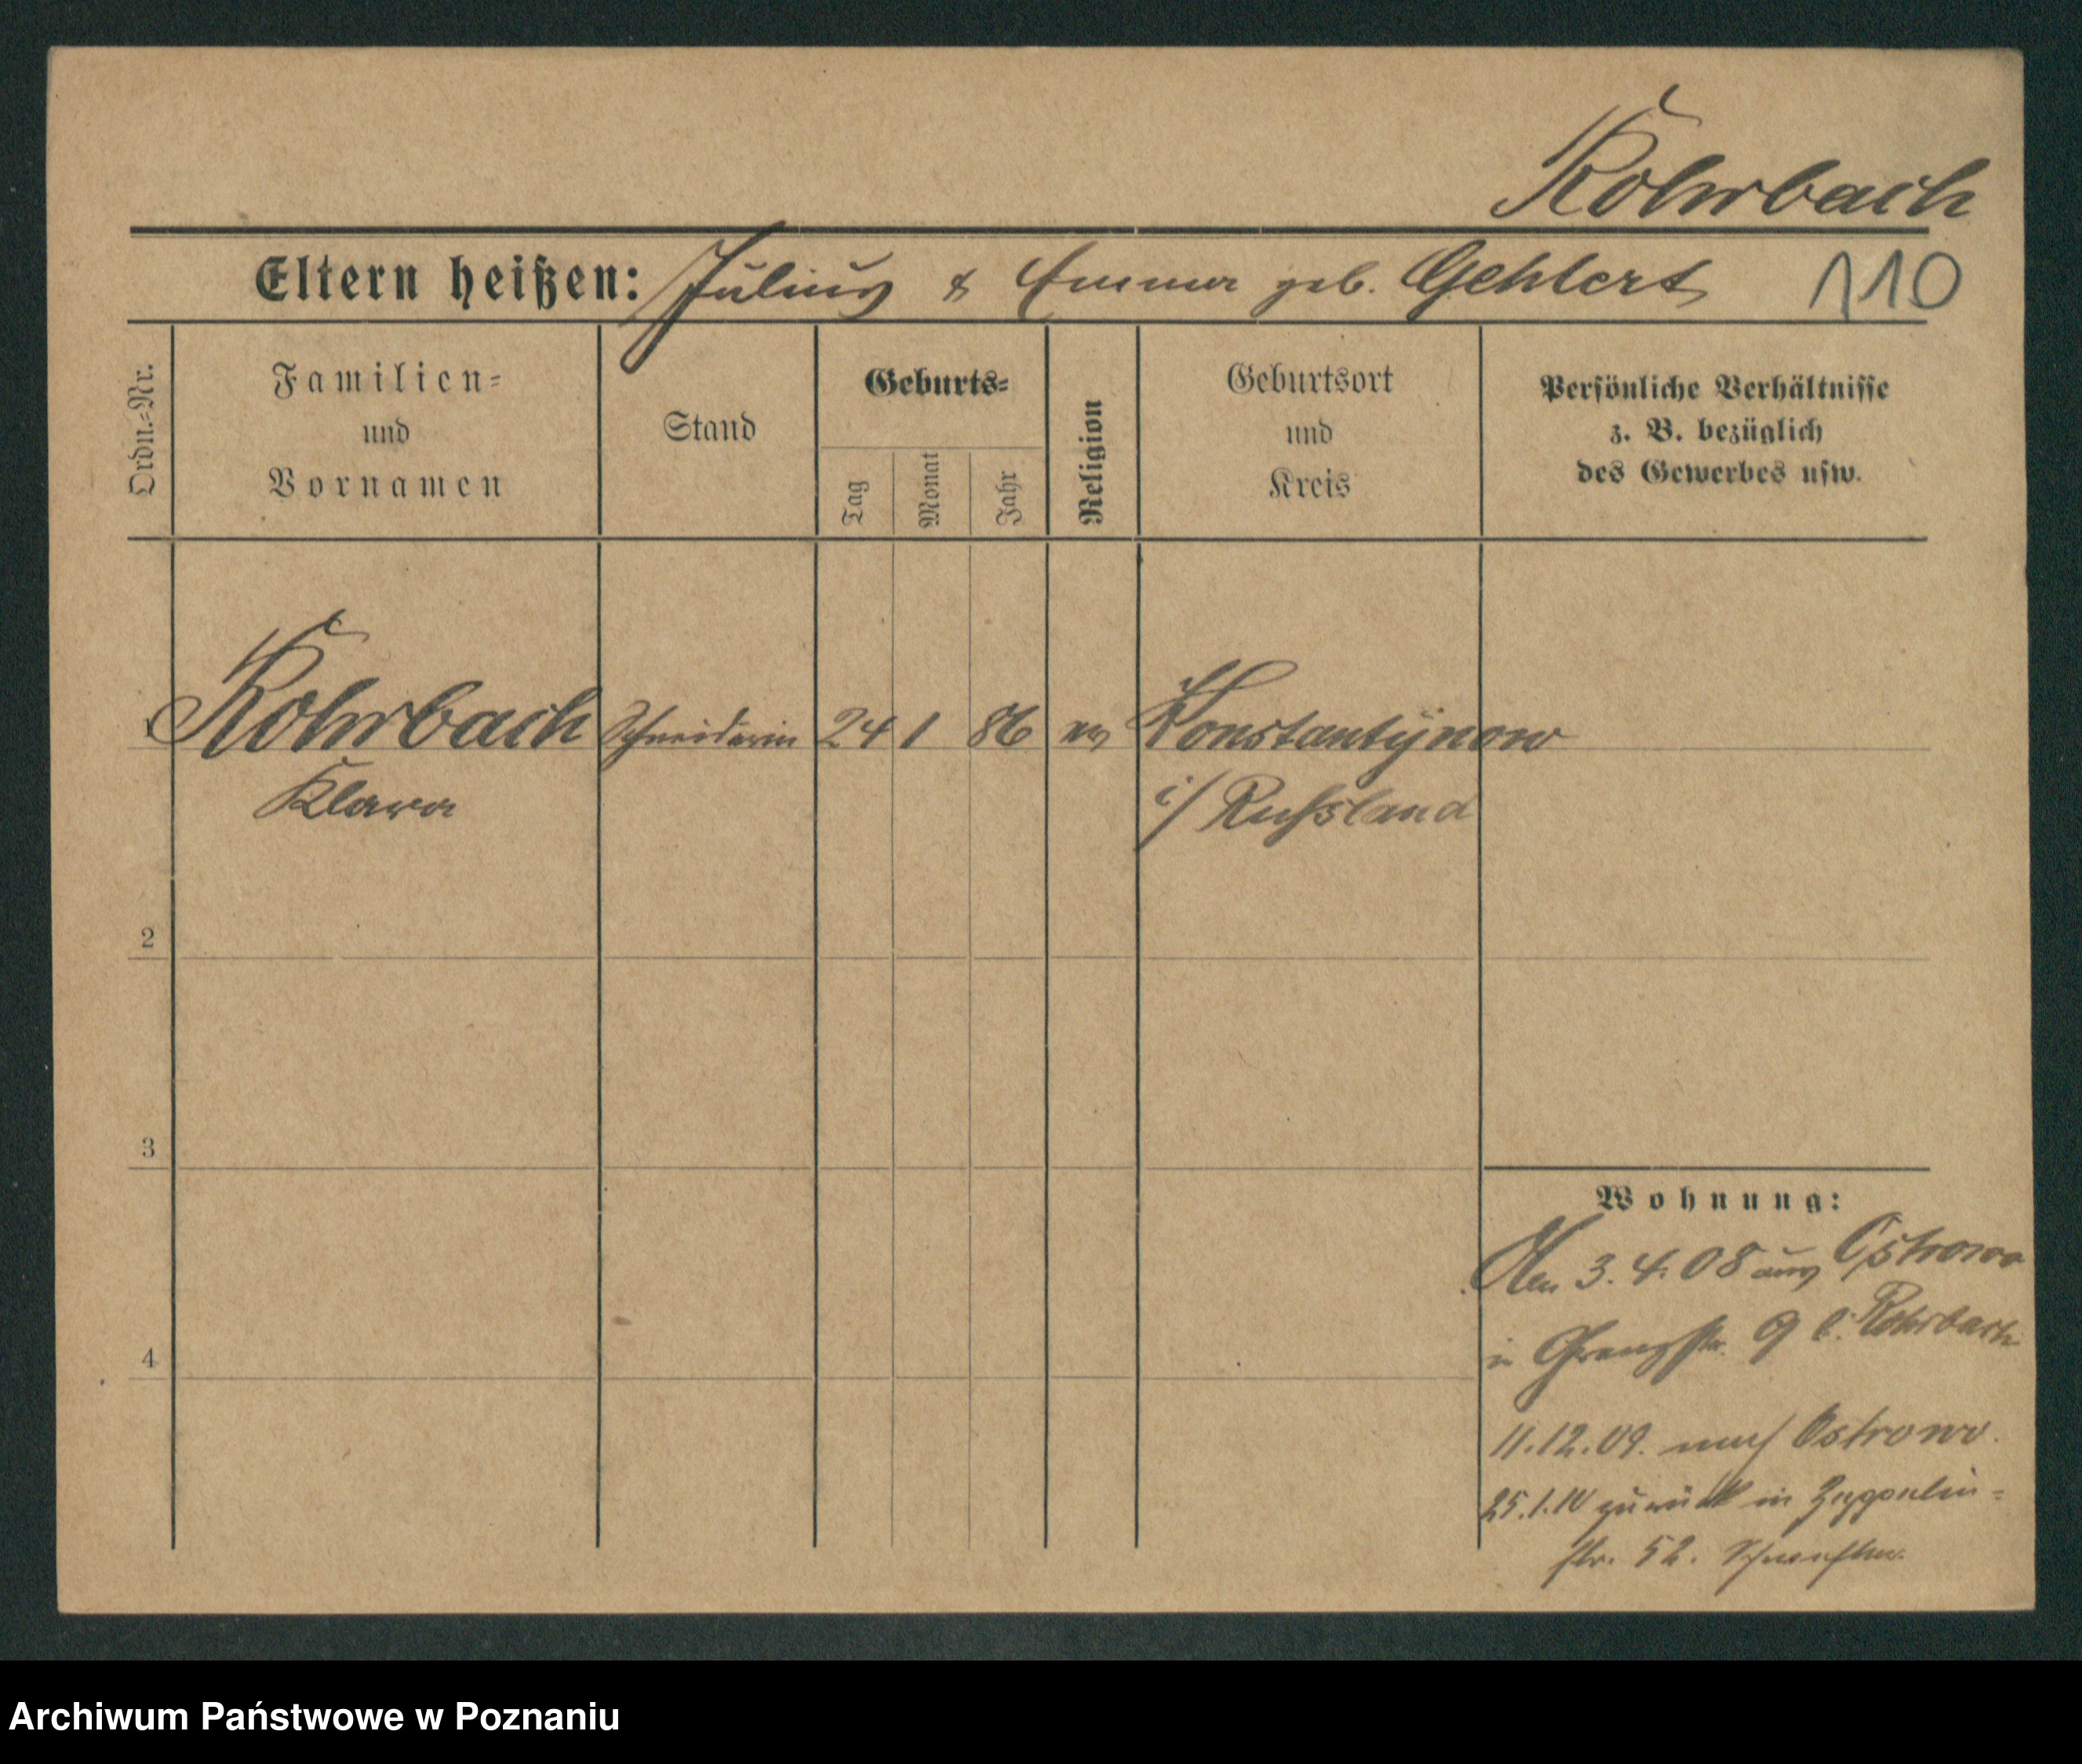 Rohrbach
Eltern heißen: Julius & Emma geb. Gehlert 110
Ordn.=Nr.
Familien=
und
Vornamen
Stand
Geburts=
Tag
Monat
Jahr
Religion
Geburtsort
und
Kreis
Persönliche Verhältnisse
z. B. bezüglich
des Gewerbes usw.
1 Rohrbach Schneiderin 24 1 86 ev Konstantÿnow
Klara i/ Russland
2
3
4
Wohnung:
3. 4. 08 aus Ostrowo
in Grenzstr. 9 b. Rohrbach
11.12.09. nach Ostrowo.
25.1.10 zurück in Zeppelin=
str. 52.